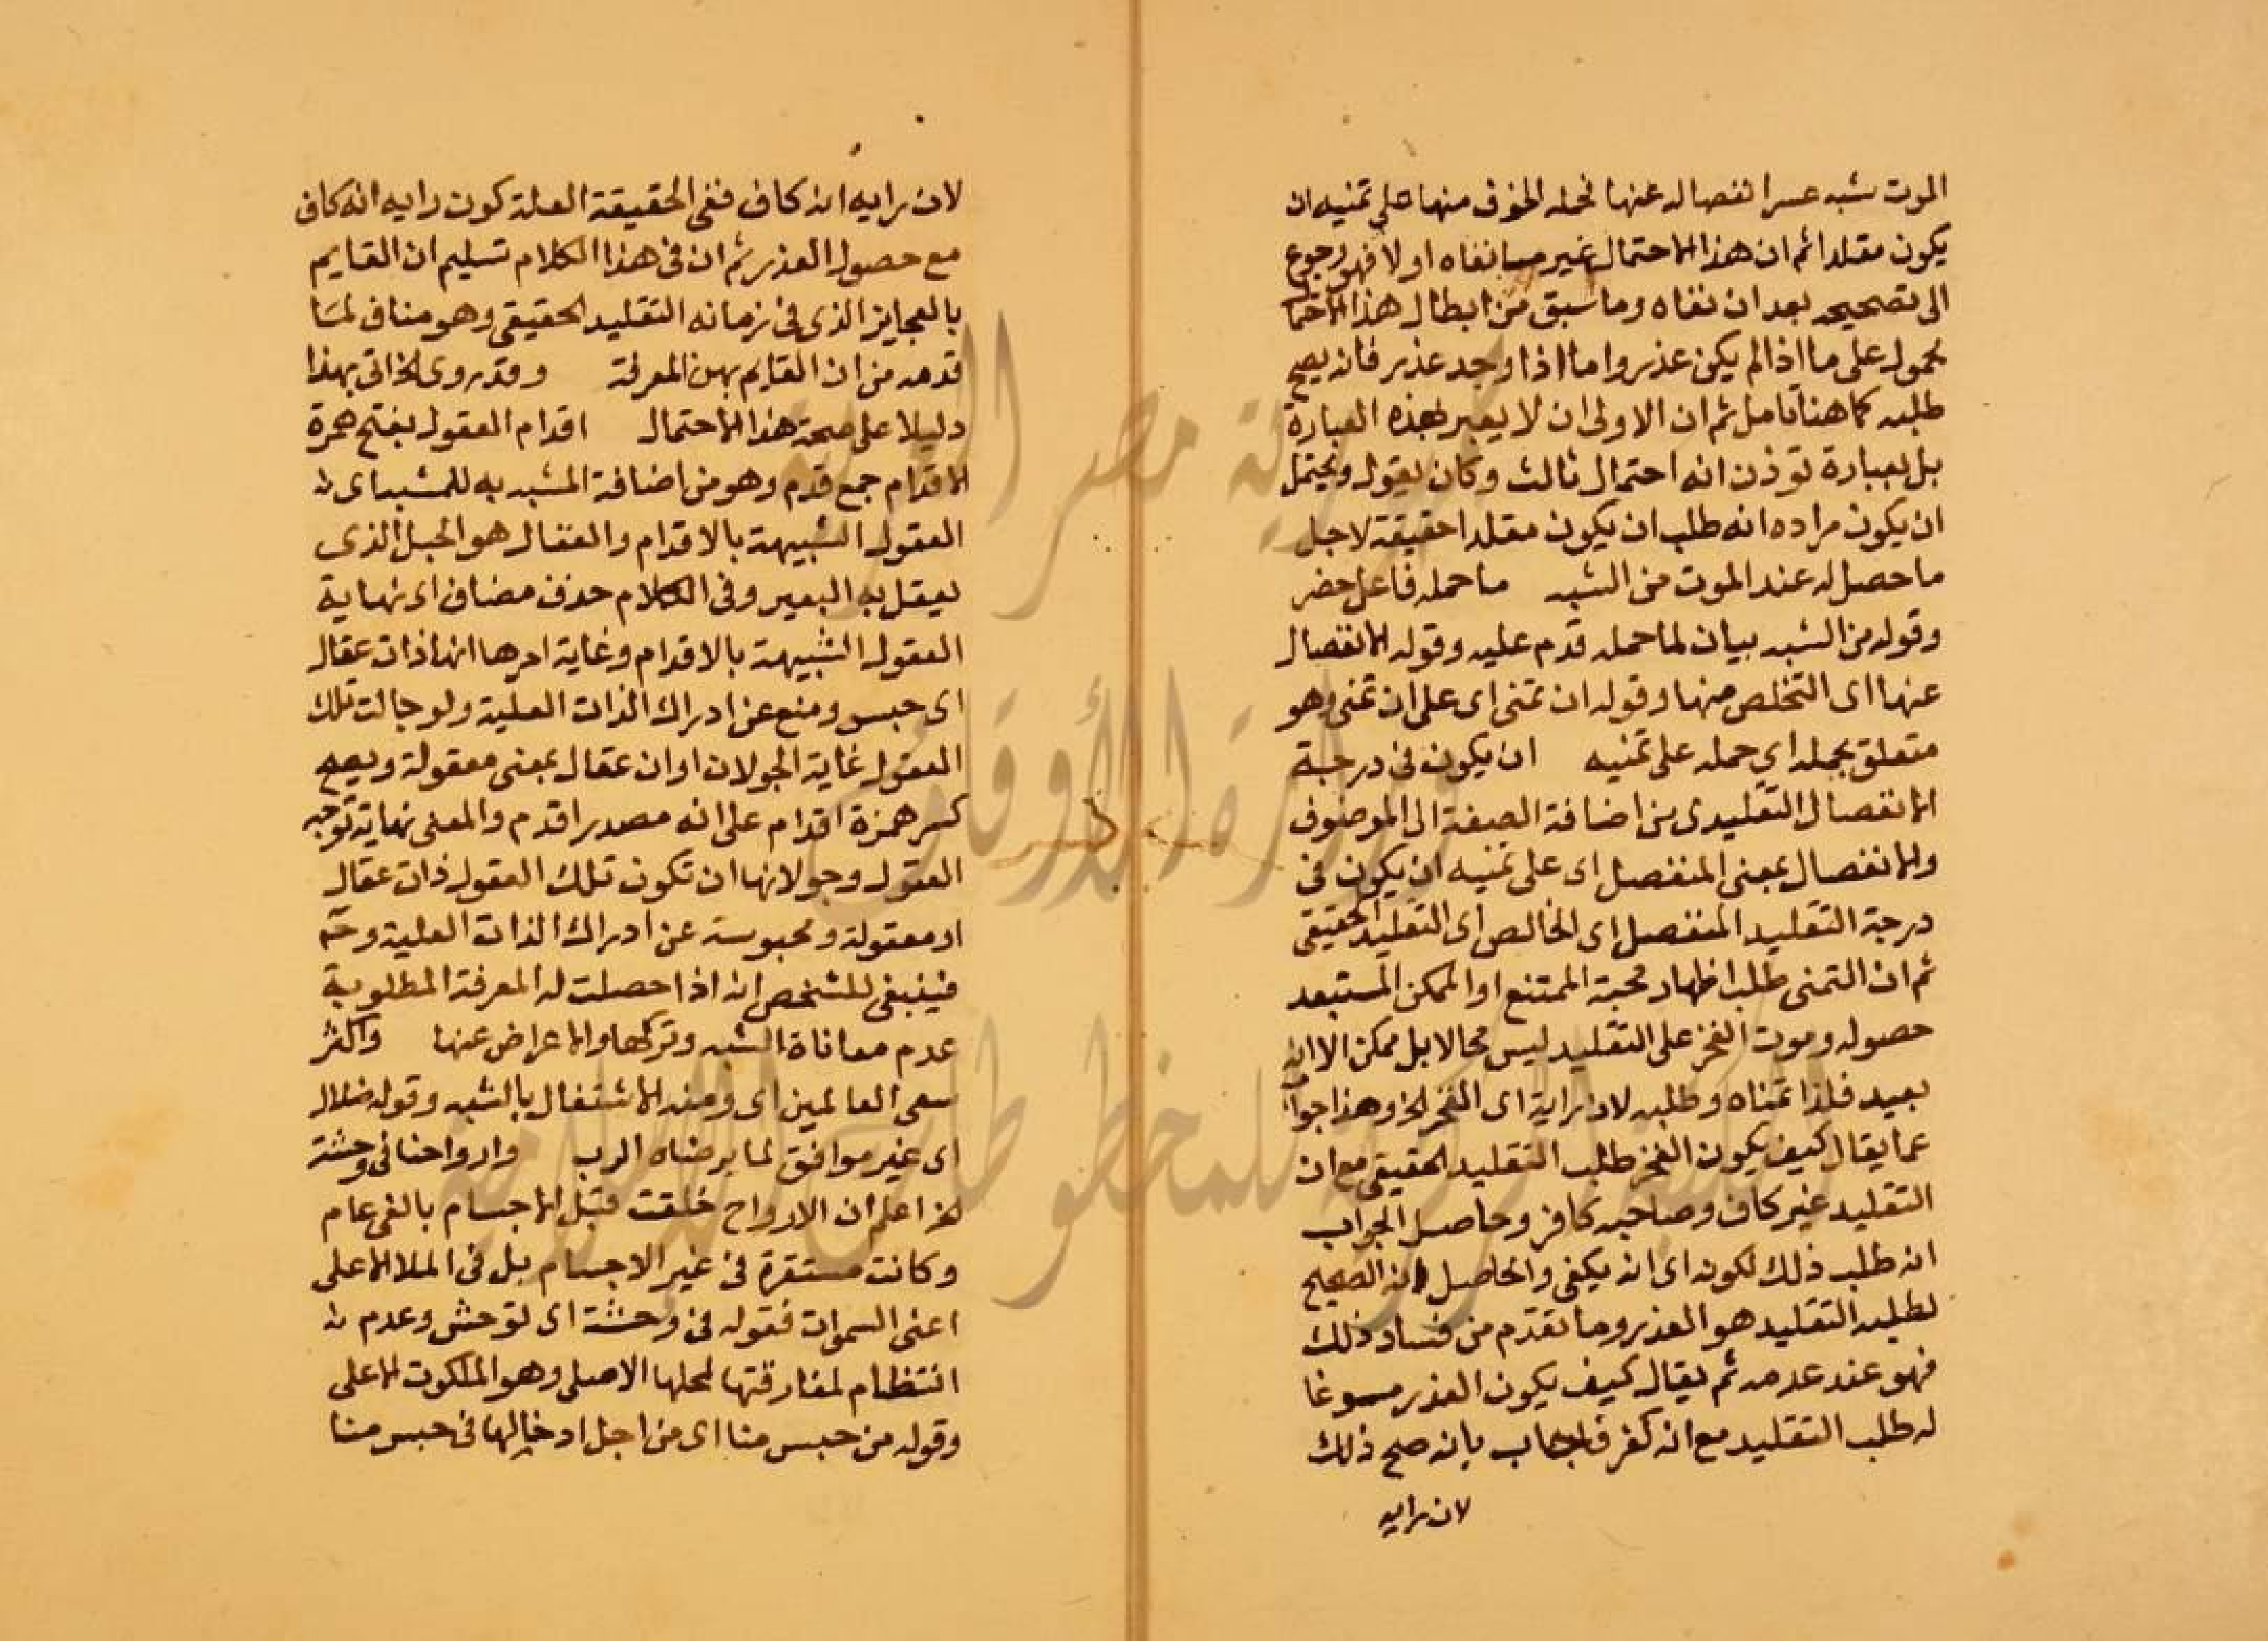 الموت شبه عسر انفصاله عنها فحمله الخوف منها على تمنيه ان
يكون مقلدا ثم ان هذا الاحتمال غير ما نفاه اولا فهو رجوع
الى تصحيحه بعد ان نفاه وما سبق من ابطال هذا الاحتما
محمول على ما اذا لم يكن عذر واما اذا وجد عذر فانه يصح
طلبه كما هنا تامل ثم ان الاولى ان لا يعبر بهذه العبارة
بل بعبارة توذن انه احتمال ثالث وكان يقول ويحتمل
ان يكون مراده انه طلب ان يكون مقلدا حقيقة لاجل
ما حصل له عند الموت من الشبه ما حمله فاعل حضر
وقوله من الشبه بيان لما حمله قدم عليه وقوله الانفصال
عنها اى التخلص منها وقوله ان تمنى اى على ان تمنى وهو
متعلق بحمله اي حمله على تمنيه ان يكون فى درجة
الانفصال التقليدى من اضافة الصفة الى الموصوف
والانفصال بمعنى المنفصل اى على تمنيه ان يكون فى
درجة التقليد المنفصل اى الخالص اى التقليد الحقيقى
ثم ان التمنى طلب اظهار محبة الممتنع او الممكن المستبعد
حصوله وموت الفخر على التقليد ليس محالا بل ممكن الا انه
بعيد فلذا تمناه وطلبه لان رايه اى الفخر الخ وهذا جواب
عما يقال كيف يكون الفخر طلب التقليد الحقيقى مع ان
التقليد غير كاف وصاحبه كافر وحاصل الجواب
انه طلب ذلك لكونه اى انه يكفى والحاصل ان الصحيح
لطلبه التقليد هو العذر وما تقدم من فساد ذلك
فهو عند عدمه ثم يقال كيف يكون العذر مسوغا
له طلب التقليد مع انه كفر فاجاب بانه صح ذلك
لان رايه
لان رايه انه كاف ففى الحقيقة العلة كون رايه انه كاف
مع حصول العذر ثم ان فى هذا الكلام تسليم ان القايم
بالعجايز الذى فى زمانه التقليد الحقيقى وهو مناف لما
قدمه من ان القايم بهن المعرفة وقد روى الخ اتى بهذا
دليلا على صحة هذا الاحتمال اقدام العقول بفتح همزة
الاقدام جمع قدم وهو من اضافة المشبه به للمشبه اى
العقول الشبيهة بالاقدام والعقال هو الحبل الذى
يعقل به البعير وفى الكلام حذف مضاف اى نهاية
العقول الشبيهة بالاقدام وغاية امرها انها ذات عقال
اى حبس ومنع عن ادراك الذات العلية ولو جالت تلك
العقول غاية الجولان او ان عقال بمعنى معقولة ويصح
كسر همزة اقدام على انه مصدر اقدم والمعنى نهاية توجه
العقول وجولانها ان تكون تلك العقول ذات عقال
او معقولة ومحبوسة عن ادراك الذات العلية وح
فينبغى للشخص انه اذا حصلت له المعرفة المطلوبة
عدم معاناة الشبه وتركها والاعراض عنها واكثر
سعى العالمين اى ومنه الاشتغال بالشبه وقوله ضلال
اى غير موافق لما يرضاه الرب وارواحنا فى وحشة
الخ اعلم ان الارواح خلقت قبل الاجسام بالفى عام
وكانت مستقرة فى غير الاجسام بل فى الملا الاعلى
اعنى السموات فقوله فى وحشة اى توحش وعدم
انتظام لمفارقتها لمحلها الاصلى وهو الملكوت الاعلى
وقوله من حبس منا اى من اجل ادخالها فى حبس منا
جمهورية مصر العربية
وزارة الأوقاف
المكتبة المركزية للمخطوطات الإسلامية